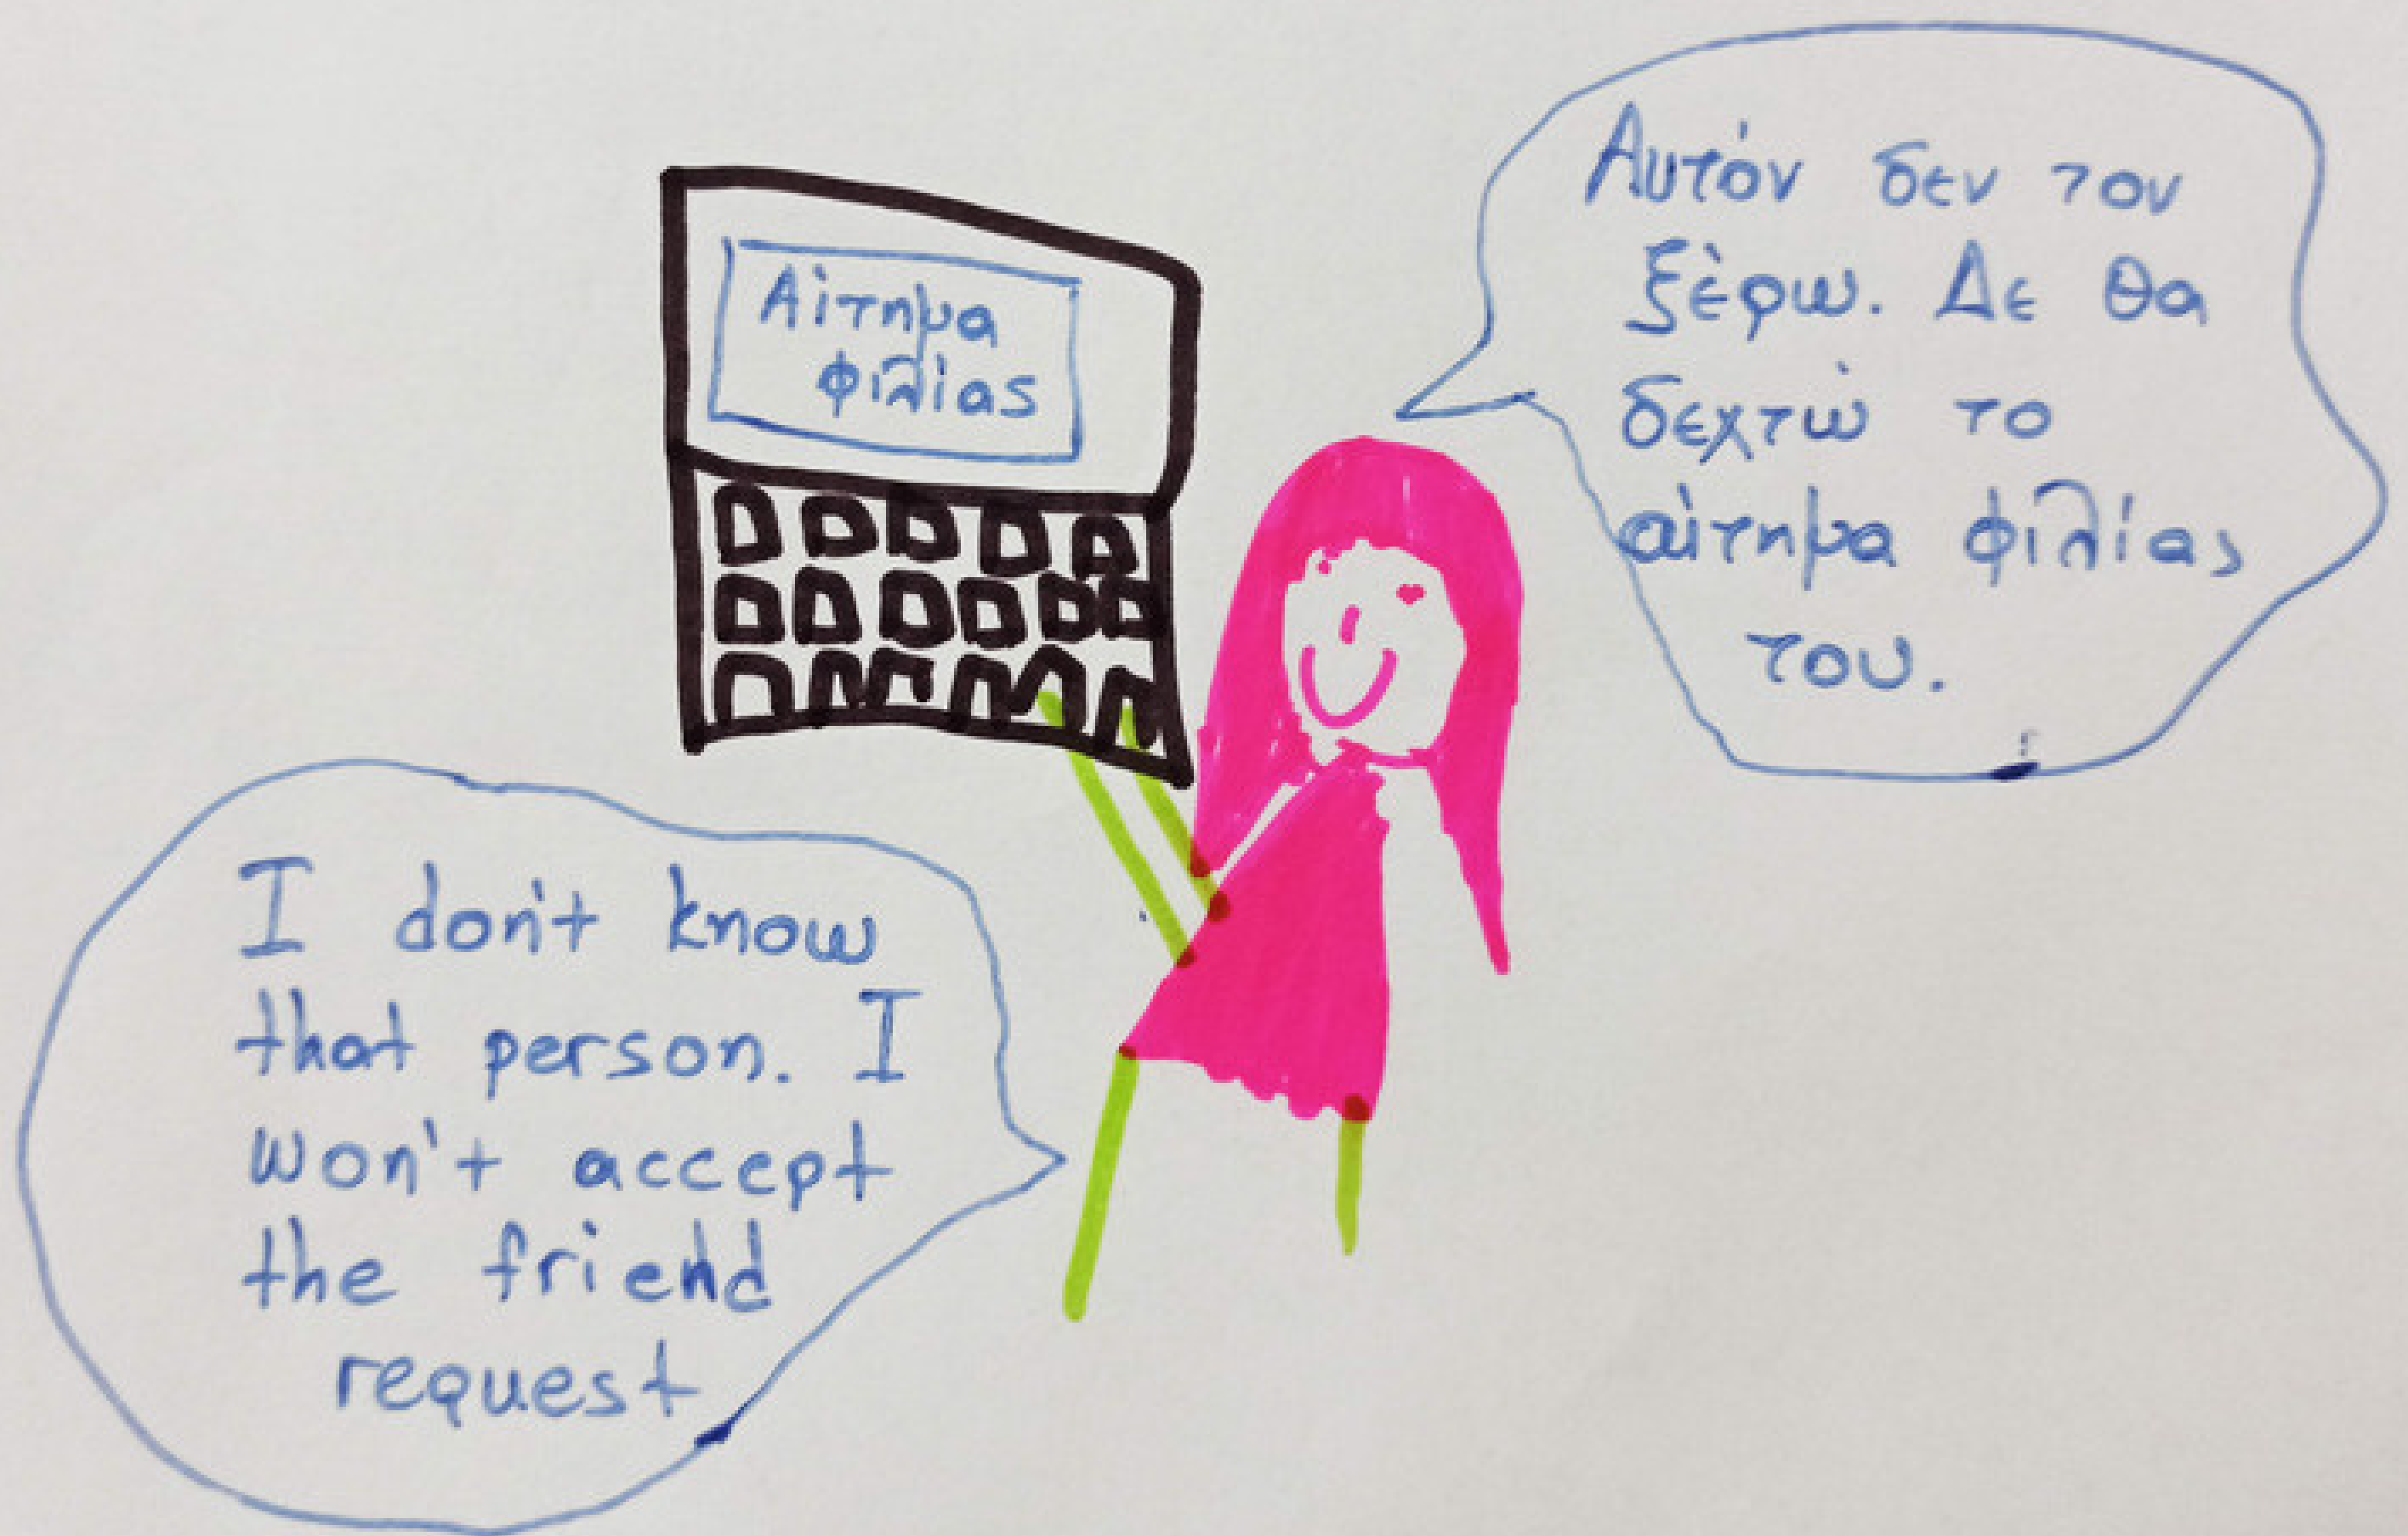 Αίτημα
φιλίας
Αυτόν δεν τον
ξέρω. Δε θα
δεχτώ το
αίτημα φιλίας
του.
I don't know
that person. I
won't accept
the friend
request